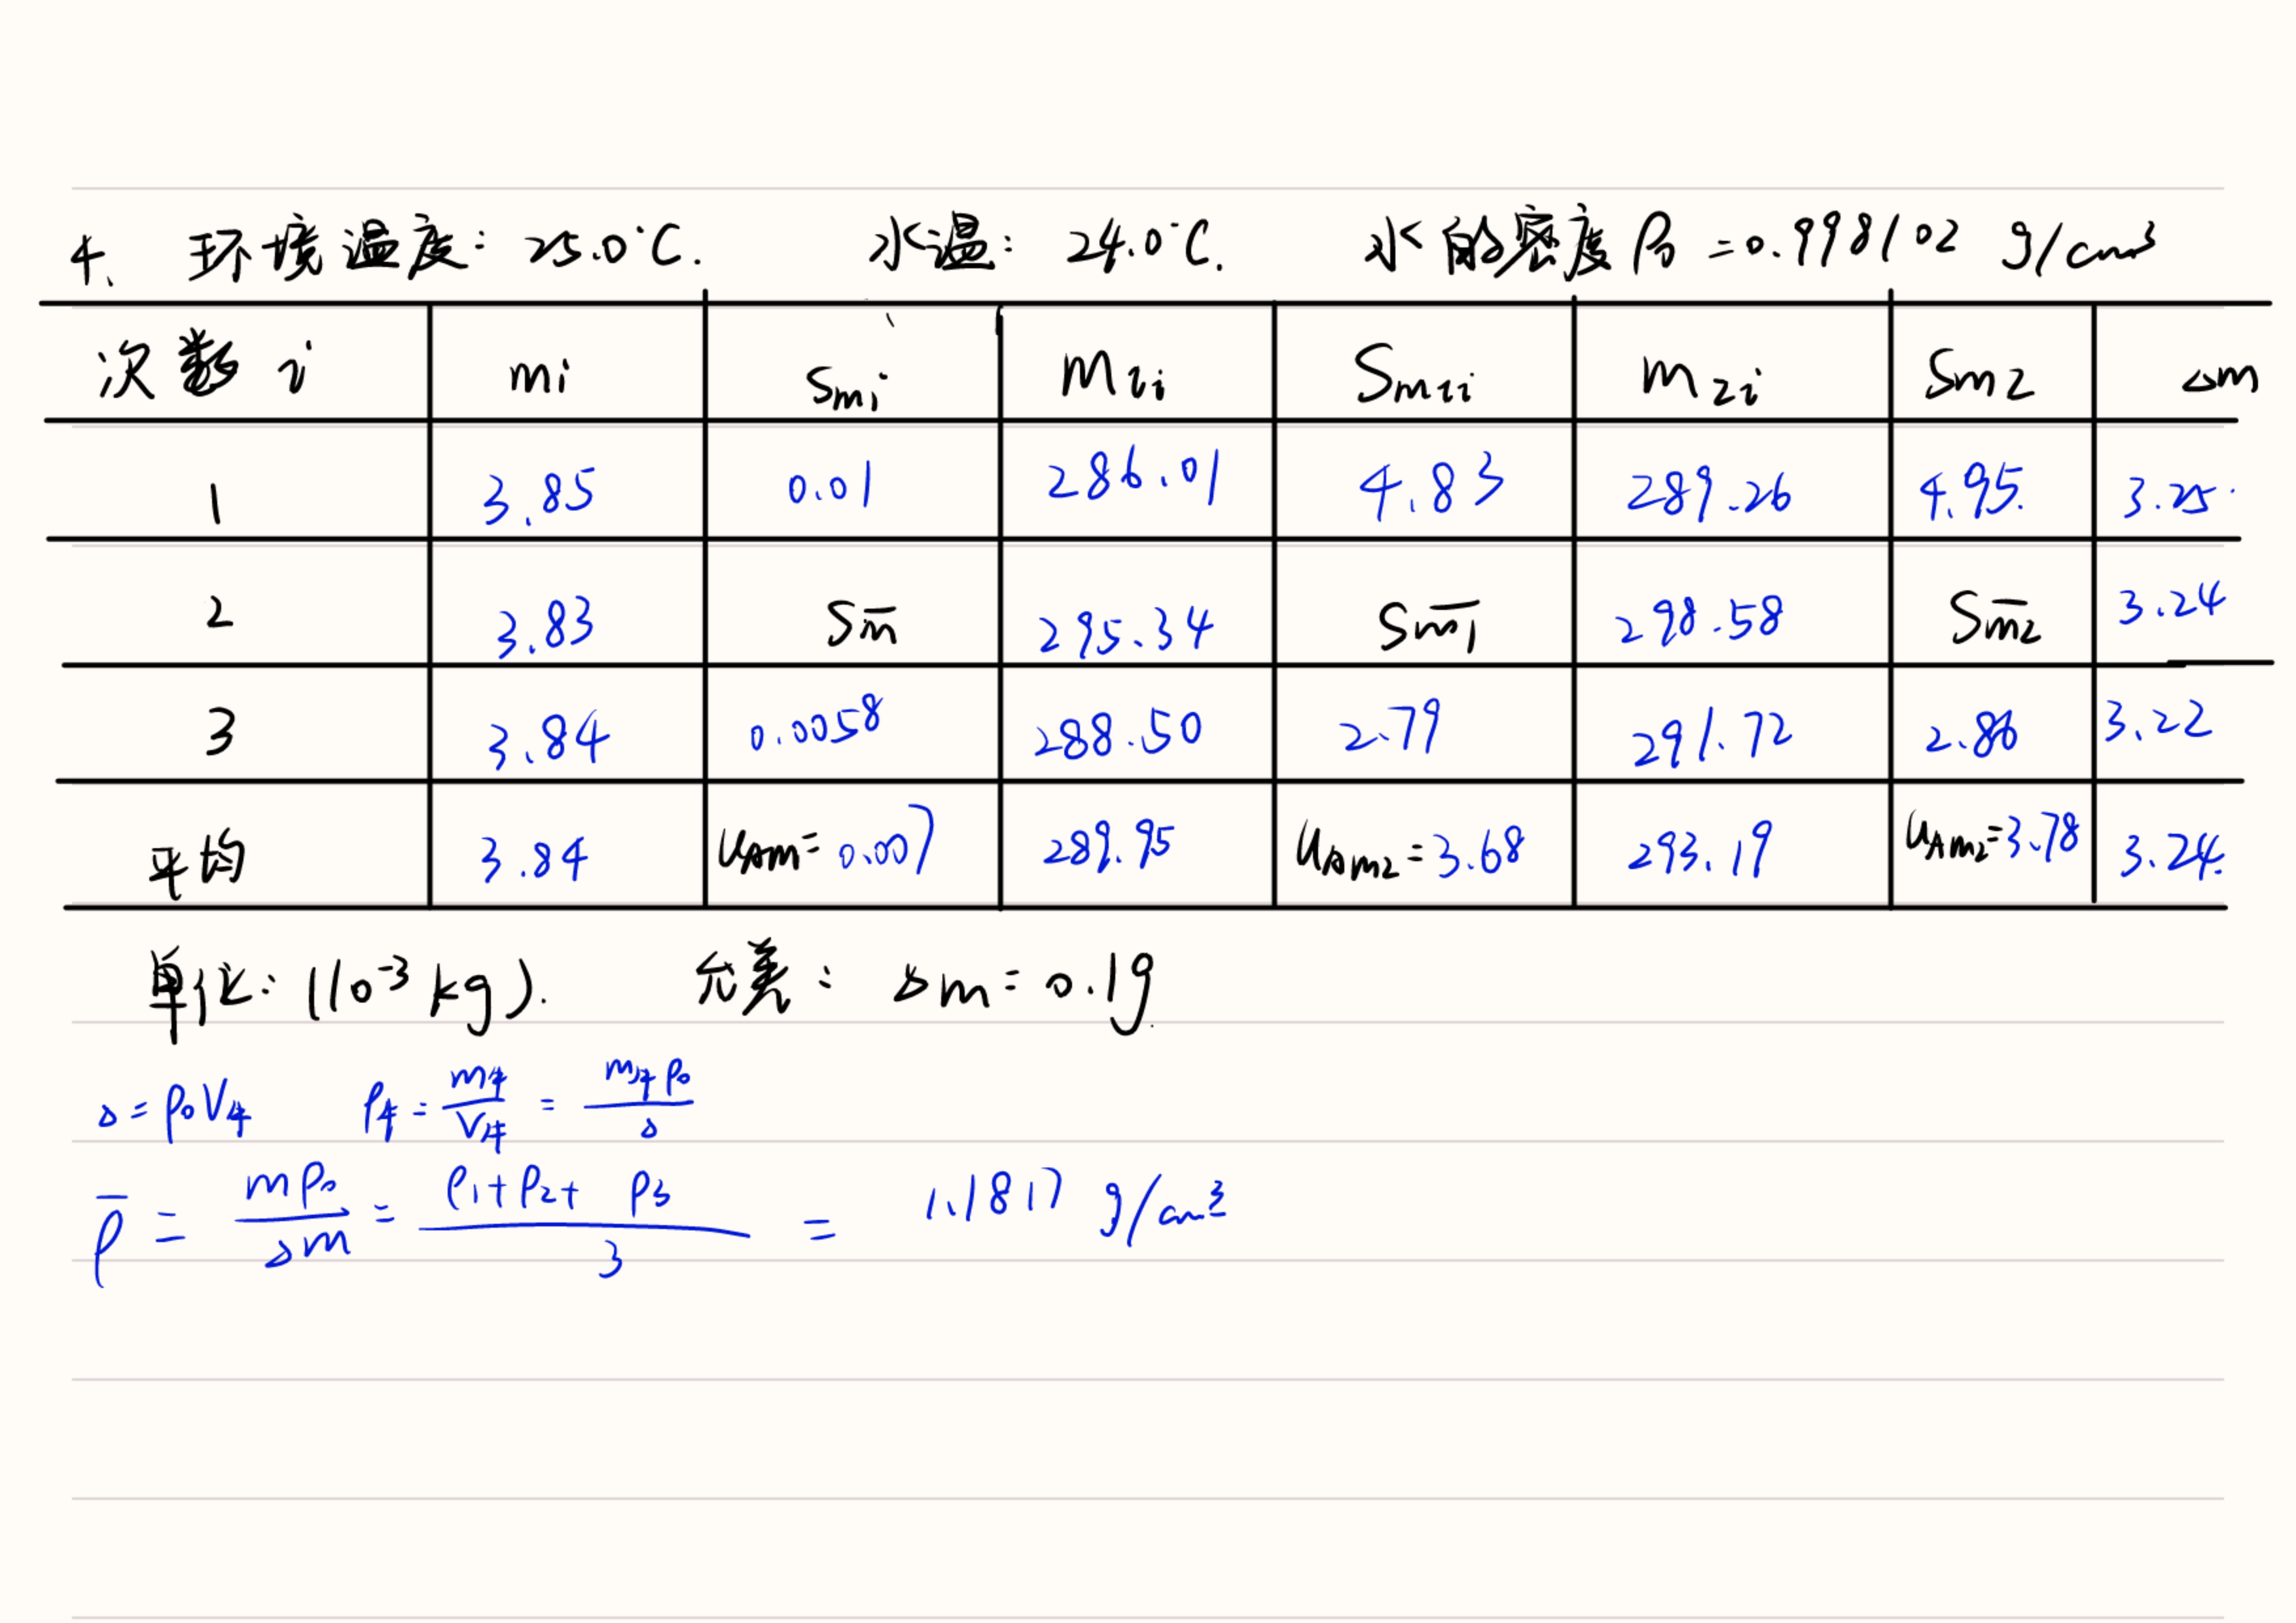 4. 环境温度: 25.0°C. 水温: 24.0°C. 水的密度 ρ₀ = 0.998102 g/cm³
次数 i mi Smi m1i Sm1i m2i Sm2 △m
1 3.85 0.01 286.01 4.83 289.26 4.95. 3.25.
2 3.83 Sm̅ 295.34 Sm̅1 298.58 Sm̅2 3.24
3 3.84 0.0058 288.50 2.79 291.72 2.86 3.22
平均 3.84 UAm=0.007 289.95 UAm2=3.68 293.19 UAm2=3.78 3.24.
单位: (10⁻³ kg). 允差: △m=0.1g.
△=ρ₀V牛 ρ牛=m牛/V牛=m牛ρ₀/△
ρ̅ = mρ₀/△m = (ρ1+ρ2+ρ3)/3 = 1.1817 g/cm³